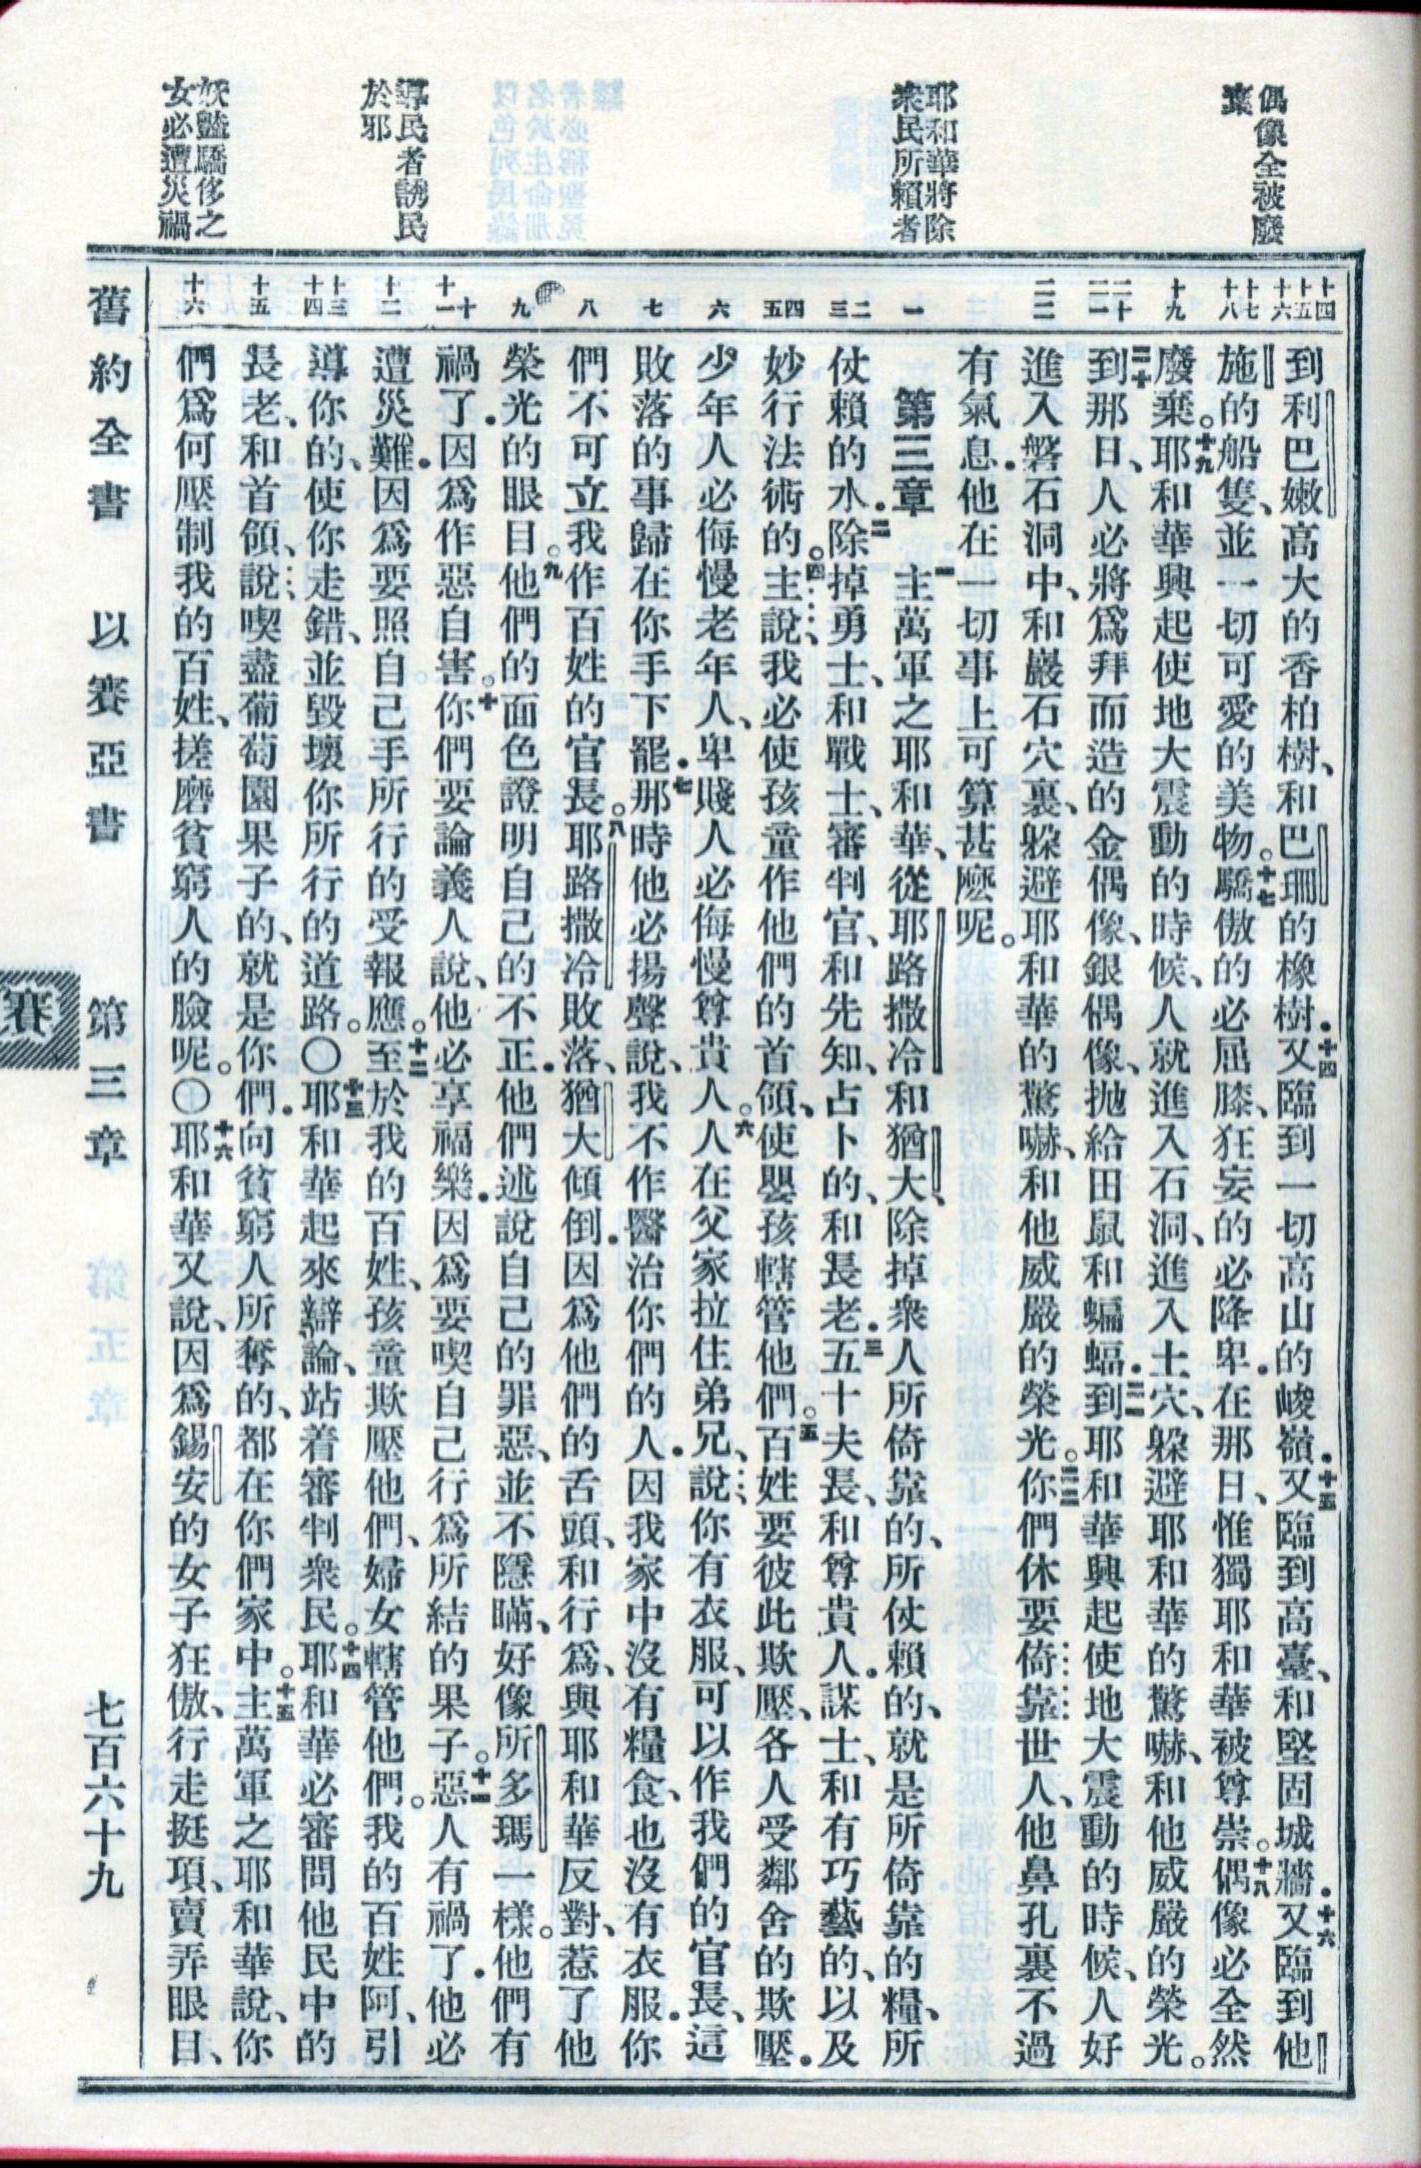 偶像全被廢
棄
耶和華將除
衆民所賴者
導民者誘民
於邪
妖豔驕侈之
女必遭災禍
十四
十五
十六
十七
十八
十九
二十
二一
二二
一
二
三
四
五
六
七
八
九
十
十一
十二
十三
十四
十五
十六
到利巴嫩高大的香柏樹、和巴珊的橡樹．十四又臨到一切高山的峻嶺．十五又臨到高臺、和堅固城牆．十六又臨到他
施的船隻、並一切可愛的美物。十七驕傲的必屈膝、狂妄的必降卑．在那日、惟獨耶和華被尊崇。十八偶像必全然
廢棄。十九耶和華興起使地大震動的時候、人就進入石洞、進入土穴、躲避耶和華的驚嚇、和他威嚴的榮光。
二十到那日、人必將爲拜而造的金偶像、銀偶像、拋給田鼠和蝙蝠．二一到耶和華興起使地大震動的時候、人好
進入磐石洞中、和巖石穴裏、躲避耶和華的驚嚇、和他威嚴的榮光。二二你們休要倚靠世人、他鼻孔裏不過
有氣息．他在一切事上可算甚麼呢。
第三章　一主萬軍之耶和華、從耶路撒冷和猶大、除掉衆人所倚靠的、所仗賴的、就是所倚靠的糧、所
仗賴的水．二除掉勇士、和戰士、審判官、和先知、占卜的、和長老．三五十夫長、和尊貴人．謀士、和有巧藝的、以及
妙行法術的。四主說、我必使孩童作他們的首領、使嬰孩轄管他們。五百姓要彼此欺壓、各人受鄰舍的欺壓．
少年人必侮慢老年人、卑賤人必侮慢尊貴人。六人在父家拉住弟兄、說、你有衣服、可以作我們的官長、這
敗落的事歸在你手下罷．七那時他必揚聲說、我不作醫治你們的人．因我家中沒有糧食、也沒有衣服．你
們不可立我作百姓的官長。八耶路撒冷敗落、猶大傾倒．因爲他們的舌頭、和行爲、與耶和華反對、惹了他
榮光的眼目。九他們的面色證明自己的不正．他們述說自己的罪惡、並不隱瞞、好像所多瑪一樣。他們有
禍了．因爲作惡自害。十你們要論義人說、他必享福樂．因爲要喫自己行爲所結的果子。十一惡人有禍了．他必
遭災難．因爲要照自己手所行的受報應。十二至於我的百姓、孩童欺壓他們、婦女轄管他們。我的百姓阿、引
導你的、使你走錯、並毀壞你所行的道路。〇十三耶和華起來辯論、站着審判衆民。十四耶和華必審問他民中的
長老、和首領、說、喫盡葡萄園果子的、就是你們．向貧窮人所奪的、都在你們家中。十五主萬軍之耶和華說、你
們爲何壓制我的百姓、搓磨貧窮人的臉呢。〇十六耶和華又說、因爲錫安的女子狂傲、行走挺項、賣弄眼目、
舊約全書　以賽亞書　第三章　七百六十九
賽